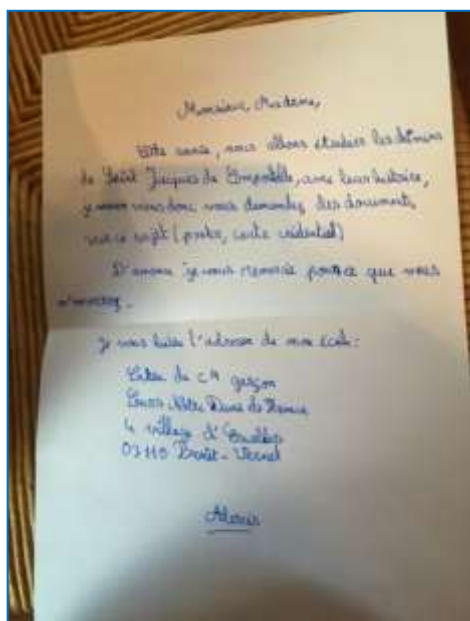 Monsieur, Madame,
Cette année, nous allons étudier les chemins
de Saint Jacques de Compostelle, avec leur histoire,
je viens donc vous demander des documents
sur ce sujet (poster, carte crédential)
D'avance je vous remercie pour ce que vous
m'enverrez.
Je vous laisse l'adresse de mon école :
de garçon
Cours Notre Dame de France
4 village d'
03110 Broût-Vernet